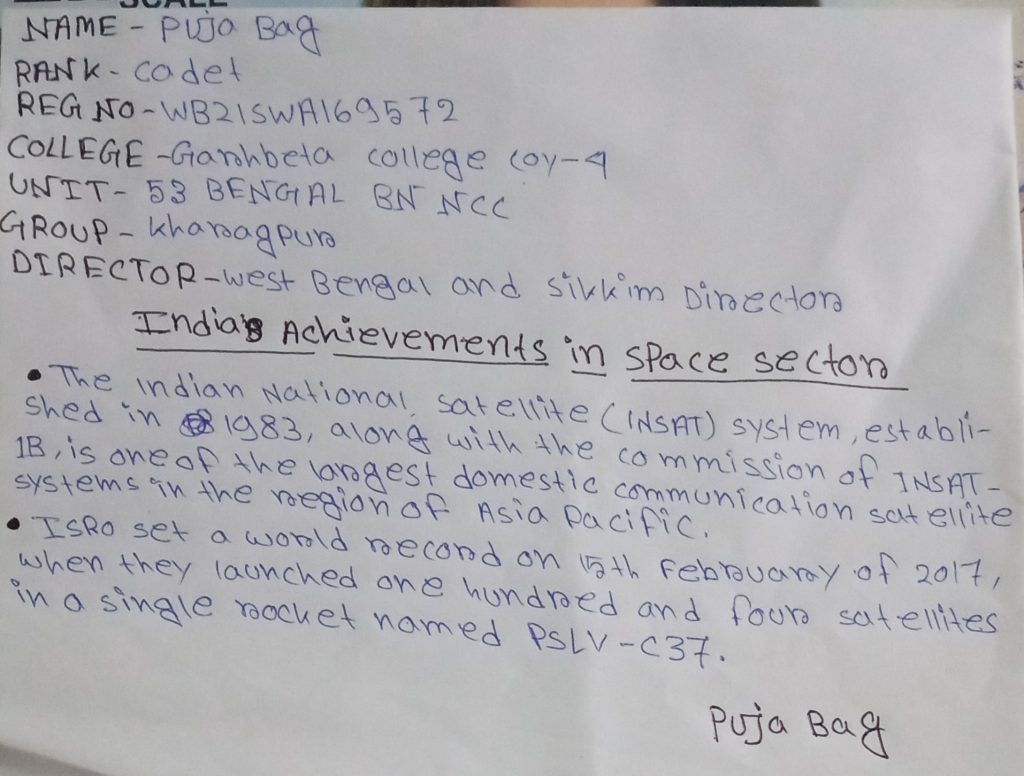 NAME - Puja Bag
RANK - Cadet
REG NO - WB21SWA169572
COLLEGE - Garhbeta college coy-4
UNIT - 53 BENGAL BN NCC
GROUP - kharagpur
DIRECTOR - west Bengal and Sikkim Director
India's Achievements in space sector
• The Indian National Satellite (INSAT) system, establi-
shed in 1983, along with the commission of INSAT-
1B, is one of the largest domestic communication satellite
systems in the region of Asia Pacific.
• ISRO set a world record on 15th February of 2017,
when they launched one hundred and four satellites
in a single rocket named PSLV-C37.
Puja Bag